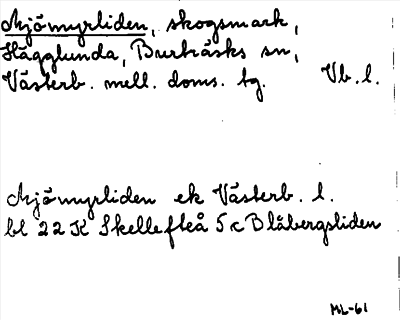 Mjömyrliden, skogsmark,
Hägglunda, Burträsks sn,
Västerb. mell. doms. tg. Vb. l.
Mjömyrliden ek Västerb. l.
bl 22 K Skellefteå 5 c Blåbergsliden
ML-61